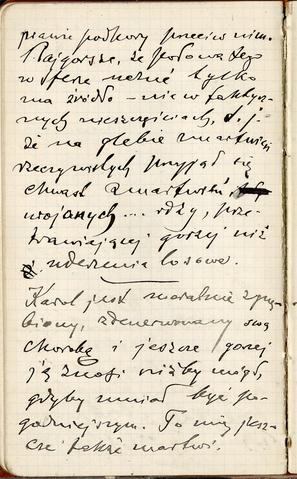 prawie podkowy przeciw nim.
Najgorsze, że połowa tego
w sferze nerwów tylko
ma źródło – nie w faktycz-
nych nieszczęściach, t. j.
że na glebie zmartwień
rzeczywistych przyjął się
chwast zmartwień
urojonych... rdzy, prze-
trawiającej gorzej niż
uderzenia losowe.
Karol jest moralnie zgnę-
biony, zdenerwowany swą
chorobą i jeszcze gorzej
ją znosi niżby mógł,
gdyby umiał być po-
godniejszym. To mię jesz-
cze także martwi.